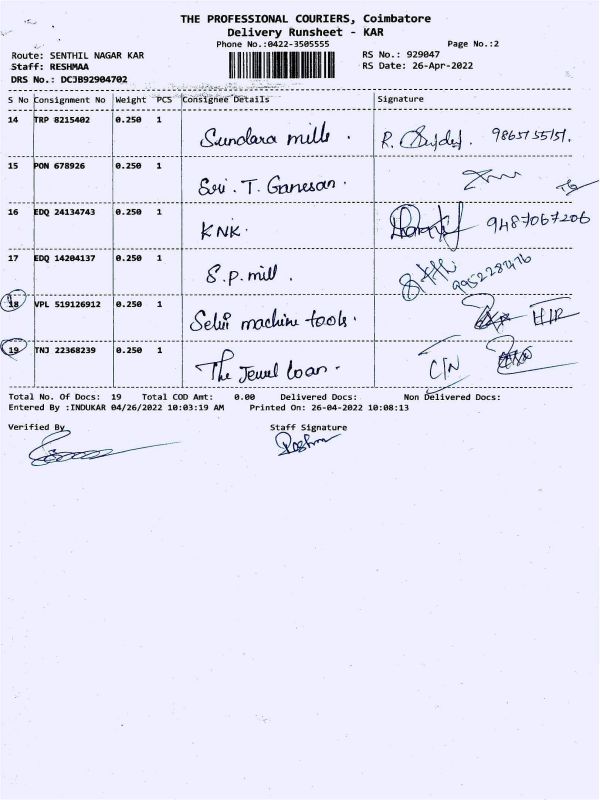 THE PROFESSIONAL COURIERS, Coimbatore
Delivery Runsheet - KAR
Phone No.:0422-3505555 Page No.:2
Route: SENTHIL NAGAR KAR RS No.: 929047
Staff: RESHMAA RS Date: 26-Apr-2022
DRS No.: DCJB92904702
S No Consignment No Weight PCS Consignee Details Signature
14 TRP 8215402 0.250 1 Sundara mills.
15 PON 678926 0.250 1 Sri. T. Ganesan.
16 EDQ 24134743 0.250 1 KNK. 9487067206
17 EDQ 14204137 0.250 1 S.p. mill.
18 VPL 519126912 0.250 1 Selvi machine tools.
19 TNJ 22368239 0.250 1 The Jewel loan. C/N
Total No. Of Docs: 19 Total COD Amt: 0.00 Delivered Docs: Non Delivered Docs:
Entered By :INDUKAR 04/26/2022 10:03:19 AM Printed On: 26-04-2022 10:08:13
Verified By Staff Signature
Reshma